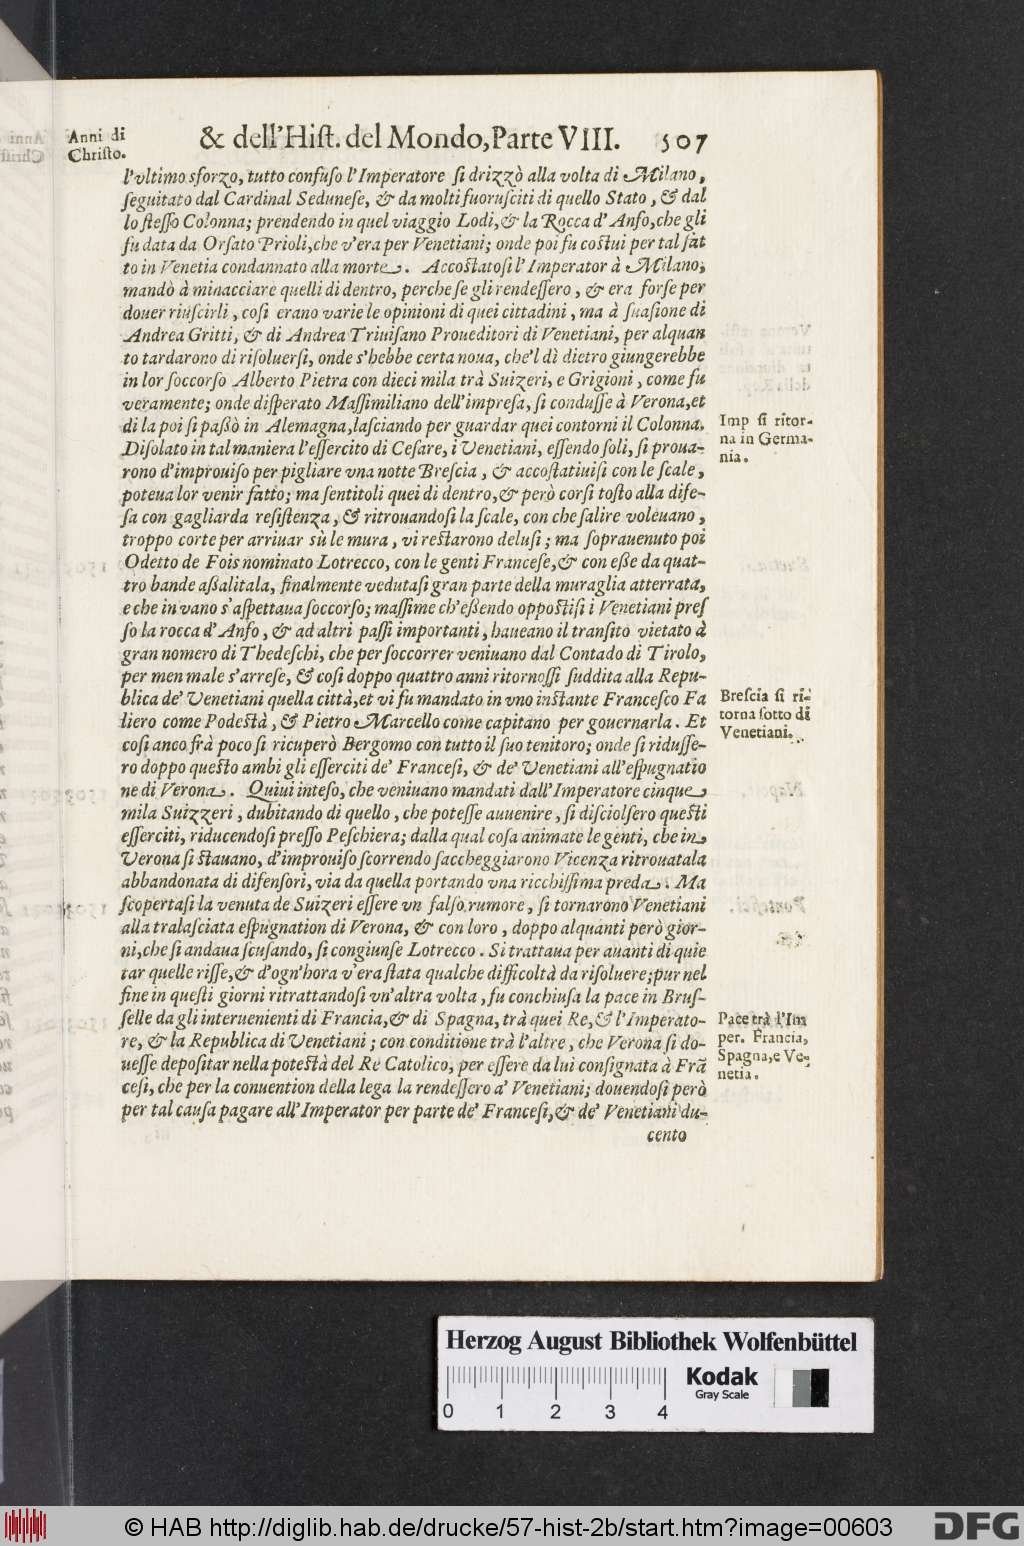 Anni di
Christo.
& dell'Hist. del Mondo, Parte VIII. 507
l'vltimo sforzo, tutto confuso l'Imperatore si drizzò alla volta di Milano,
seguitato dal Cardinal Sedunese, & da molti fuorusciti di quello Stato, & dal
lo stesso Colonna; prendendo in quel viaggio Lodi, & la Rocca d'Anfo, che gli
fu data da Orsato Prioli, che v'era per Venetiani; onde poi fu costui per tal fàt
to in Venetia condannato alla morte. Accostatosi l'Imperator à Milano;
mandò à minacciare quelli di dentro, perche se gli rendessero, & era forse per
douer riuscirli, cosi erano varie le opinioni di quei cittadini, ma à suasione di
Andrea Gritti, & di Andrea Triuisano Proueditori di Venetiani, per alquan
to tardarono di risoluersi, onde s'hebbe certa noua, che'l dì dietro giungerebbe
in lor soccorso Alberto Pietra con dieci mila trà Suizeri, e Grigioni, come fu
veramente; onde disperato Massimiliano dell'impresa, si condusse à Verona, et
di la poi si passò in Alemagna, lasciando per guardar quei contorni il Colonna.
Disolato in tal maniera l'essercito di Cesare, i Venetiani, essendo soli, si proua-
rono d'improuiso per pigliare vna notte Brescia, & accostatiuisi con le scale,
poteua lor venir fatto; ma sentitoli quei di dentro, & però corsi tosto alla dife-
sa con gagliarda resistenza, & ritrouandosi la scale, con che salire voleuano,
troppo corte per arriuar sù le mura, vi restarono delusi; ma soprauenuto poi
Odetto de Fois nominato Lotrecco, con le genti Francese, & con esse da quat-
tro bande assalitala, finalmente vedutasi gran parte della muraglia atterrata,
e che in vano s'aspettaua soccorso; massime ch'essendo oppostisi i Venetiani pres
so la rocca d'Anfo, & ad altri passi importanti, haueano il transito vietato à
gran nomero di Thedeschi, che per soccorrer veniuano dal Contado di Tirolo,
per men male s'arrese, & cosi doppo quattro anni ritornossi suddita alla Repu-
blica de' Venetiani quella città, et vi fu mandato in vno instante Francesco Fa
liero come Podestà, & Pietro Marcello come capitano per gouernarla. Et
cosi anco frà poco si ricuperò Bergomo con tutto il suo tenitoro; onde si ridusse-
ro doppo questo ambi gli esserciti de' Francesi, & de' Venetiani all'espugnatio
ne di Verona. Quiui inteso, che veniuano mandati dall'Imperatore cinque
mila Suizzeri, dubitando di quello, che potesse auuenire, si disciolsero questi
esserciti, riducendosi presso Peschiera; dalla qual cosa animate le genti, che in
Verona si stauano, d'improuiso scorrendo saccheggiarono Vicenza ritrouatala
abbandonata di difensori, via da quella portando vna ricchissima preda. Ma
scopertasi la venuta de Suizeri essere vn falso rumore, si tornarono Venetiani
alla tralasciata espugnation di Verona, & con loro, doppo alquanti però gior-
ni, che si andaua scusando, si congiunse Lotrecco. Si trattaua per auanti di quie
tar quelle risse, & d'ogn'hora v'era stata qualche difficoltà da risoluere; pur nel
fine in questi giorni ritrattandosi vn'altra volta, fu conchiusa la pace in Brus-
selle da gli interuenienti di Francia, & di Spagna, trà quei Re, & l'Imperato-
re, & la Republica di Venetiani; con conditione trà l'altre, che Verona si do-
uesse depositar nella potestà del Re Catolico, per essere da lui consignata à Frã
cesi, che per la conuention della lega la rendessero a' Venetiani; douendosi però
per tal causa pagare all'Imperator per parte de' Francesi, & de' Venetiani du-
cento
Imp si ritor-
na in Germa-
nia.
Brescia si ri-
torna sotto di
Venetiani.
Pace trà l'Im
per. Francia,
Spagna, e Ve-
netia.
Herzog August Bibliothek Wolfenbüttel
Kodak
Gray Scale
0 1 2 3 4
© HAB http://diglib.hab.de/drucke/57-hist-2b/start.htm?image=00603
DFG